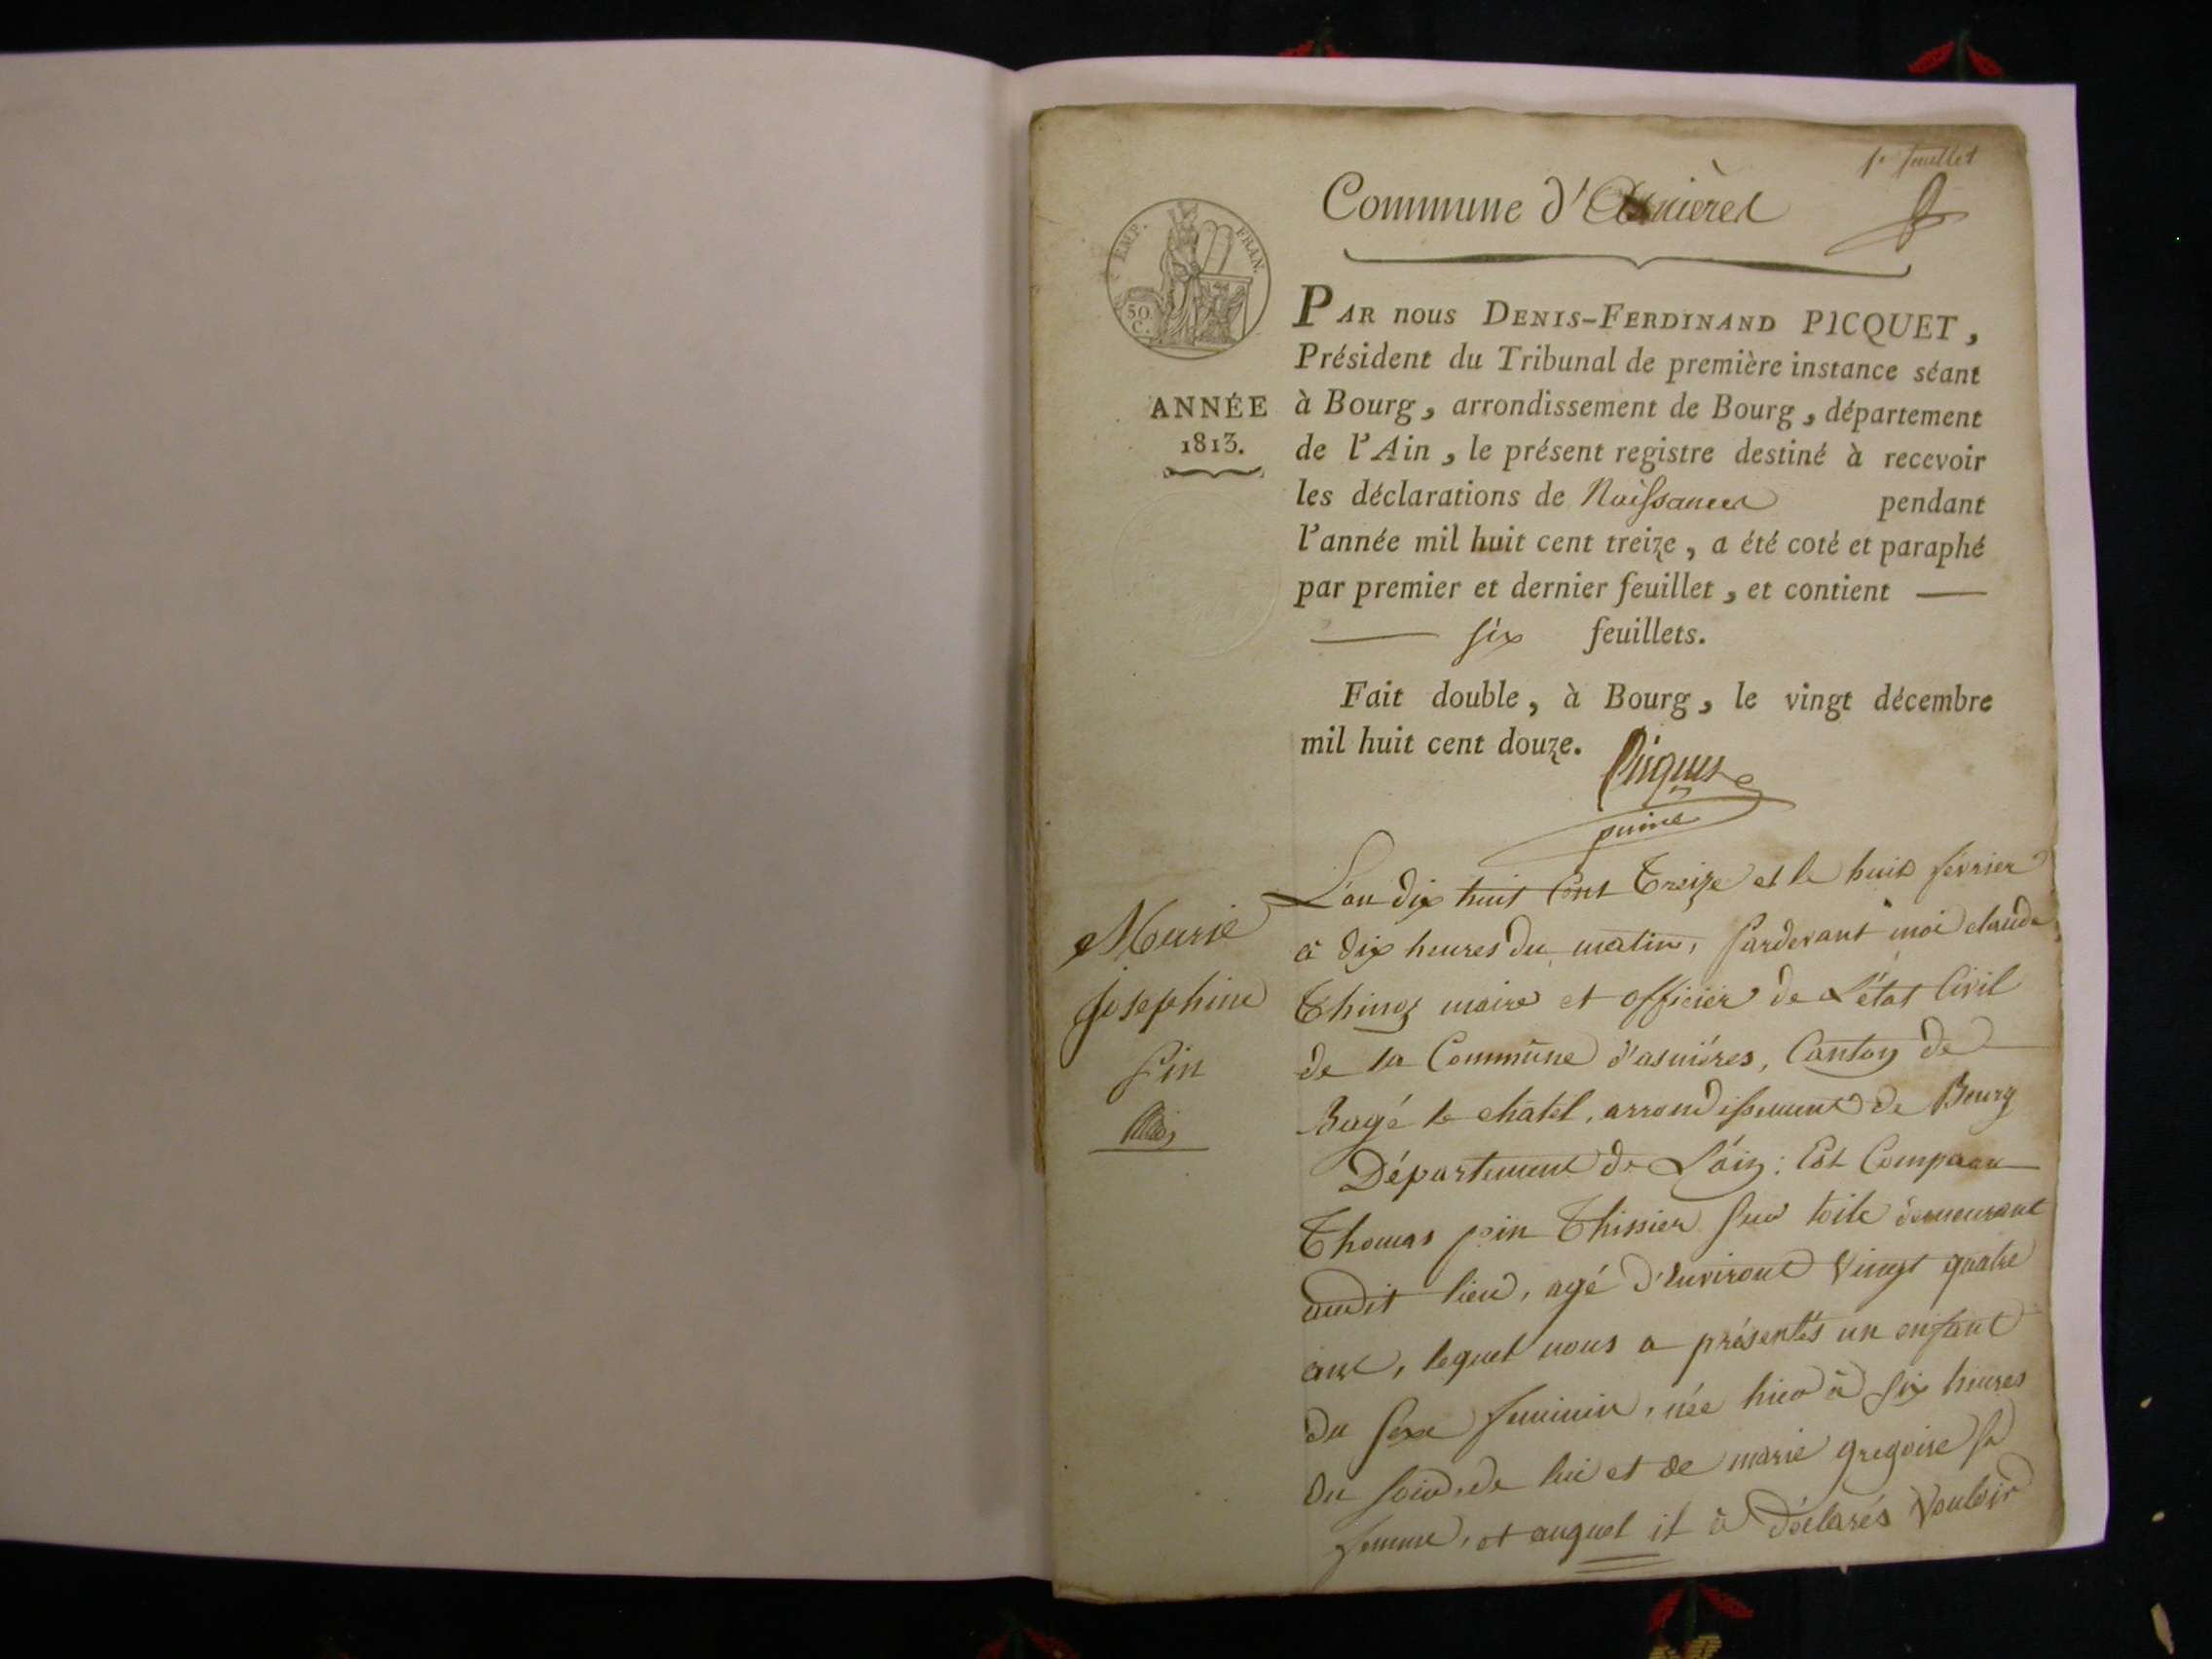 1er feuillet
Commune d'Asnières
EMP. FRAN.
50
C.
ANNÉE
1813.
PAR nous DENIS-FERDINAND PICQUET,
Président du Tribunal de première instance séant
à Bourg, arrondissement de Bourg, département
de l'Ain, le présent registre destiné à recevoir
les déclarations de Naissances pendant
l'année mil huit cent treize, a été coté et paraphé
par premier et dernier feuillet, et contient —
— six feuillets.
Fait double, à Bourg, le vingt décembre
mil huit cent douze.
Picquet
Marie
Josephine
Pin
L'an dix huit Cent Treize et le huit février
à dix heures du matin, pardevant moi claude
Thinoz maire et officier de L'état Civil
de la Commune d'asnières, Canton de
Bagé le chatel, arrondissement de Bourg
Département de L'ain: Est Comparu
Thomas pin Thissier sur toile demeurant
audit lieu, agé d'environt Vingt quatre
ans, lequel nous a présentés un enfant
du sexe feminin, née hier à six heures
du soir, de lui et de marie gregoire sa
femme, et auquel il à déclarés Vouloir